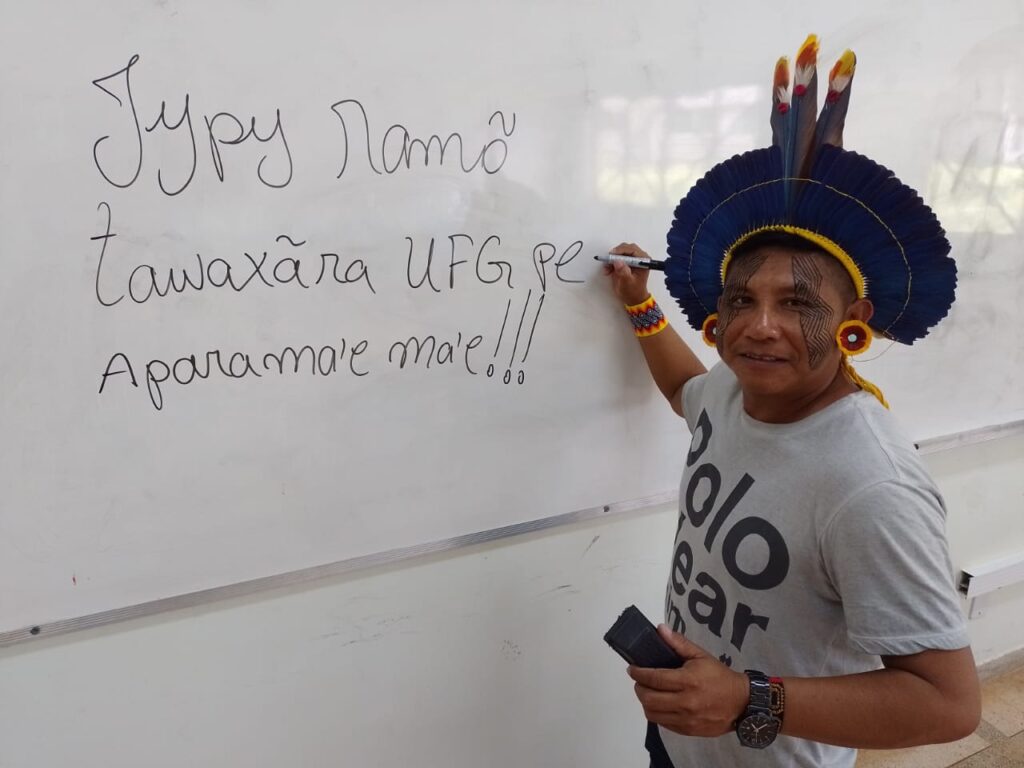 Jypy Ramõ
tawaxãra UFG pe
Aparama'e ma'e!!!
Polo
wear